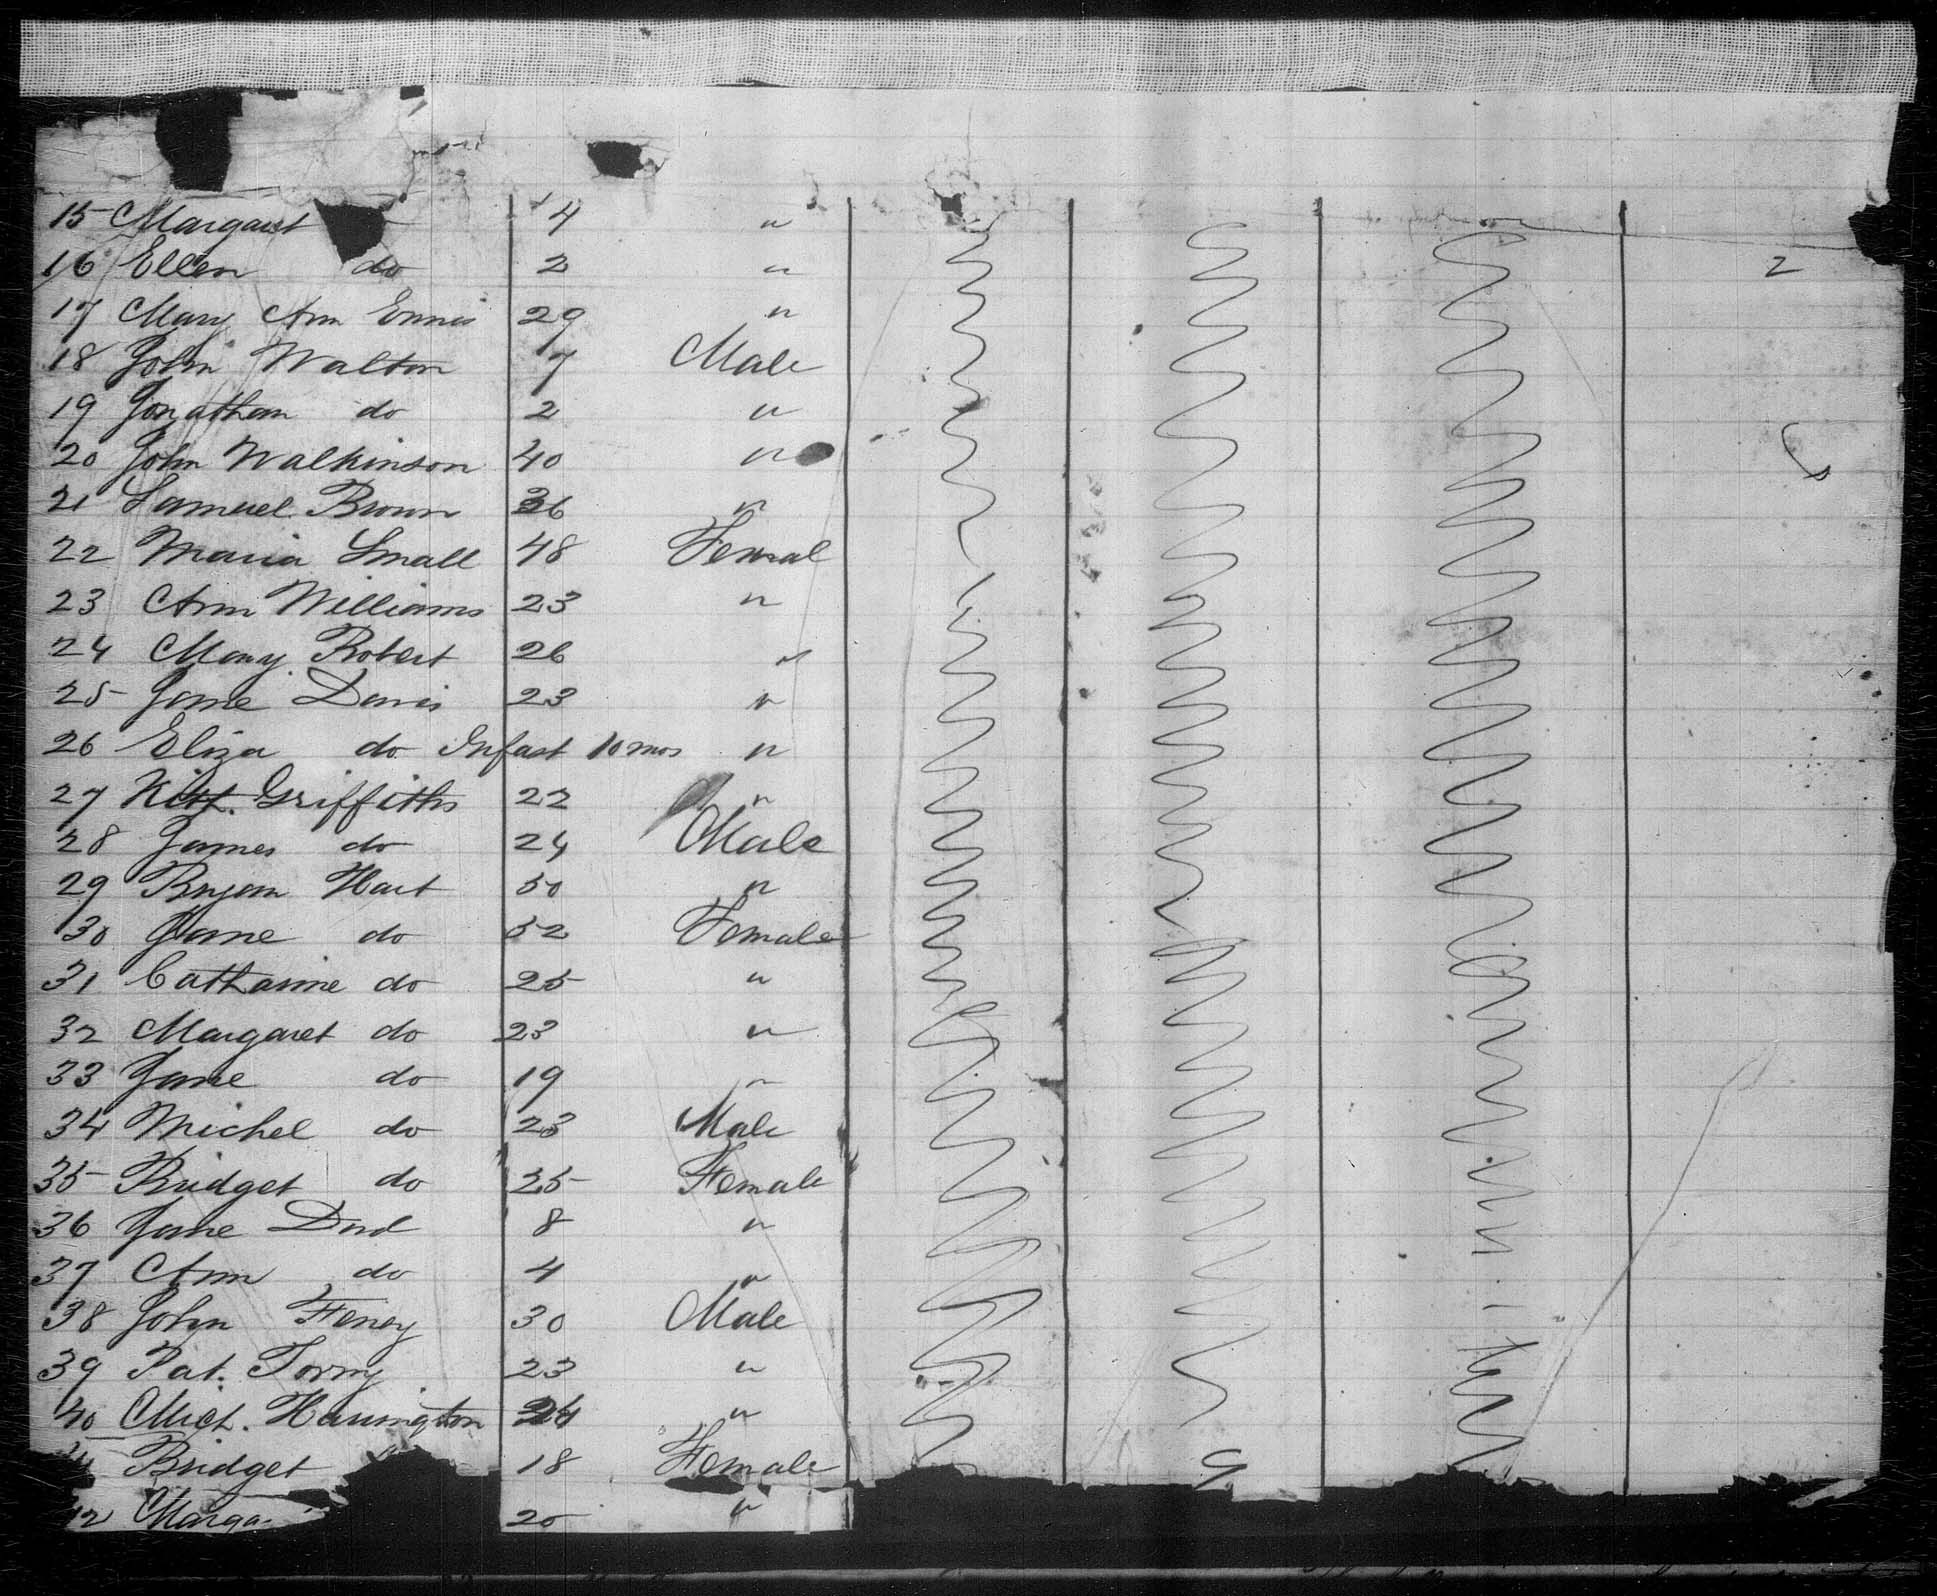 15 Margaret 4 "
16 Ellen do 2 " 2
17 Mary Ann Ennis 29 "
18 John Walton 7 Male
19 Jonathan do 2 "
20 John Walkinson 40 "
21 Samuel Brown 36 "
22 Maria Small 48 Femal
23 Ann Williams 23 "
24 Mary Robert 26 "
25 Jane Davis 23 "
26 Eliza do Infant 10 mos "
27 Kitt. Griffiths 22 "
28 James do 24 Male
29 Bryan Hart 50 "
30 Jane do 52 Female
31 Catharine do 25 "
32 Margaret do 23 "
33 Jane do 19 "
34 Michel do 23 Male
35 Bridget do 25 Female
36 Jane Dod 8 "
37 Ann do 4 "
38 John Feney 30 Male
39 Pat. Torny 23 "
40 Mich. Harrington 24 "
Bridget 18 Female
42 Marga 20 "